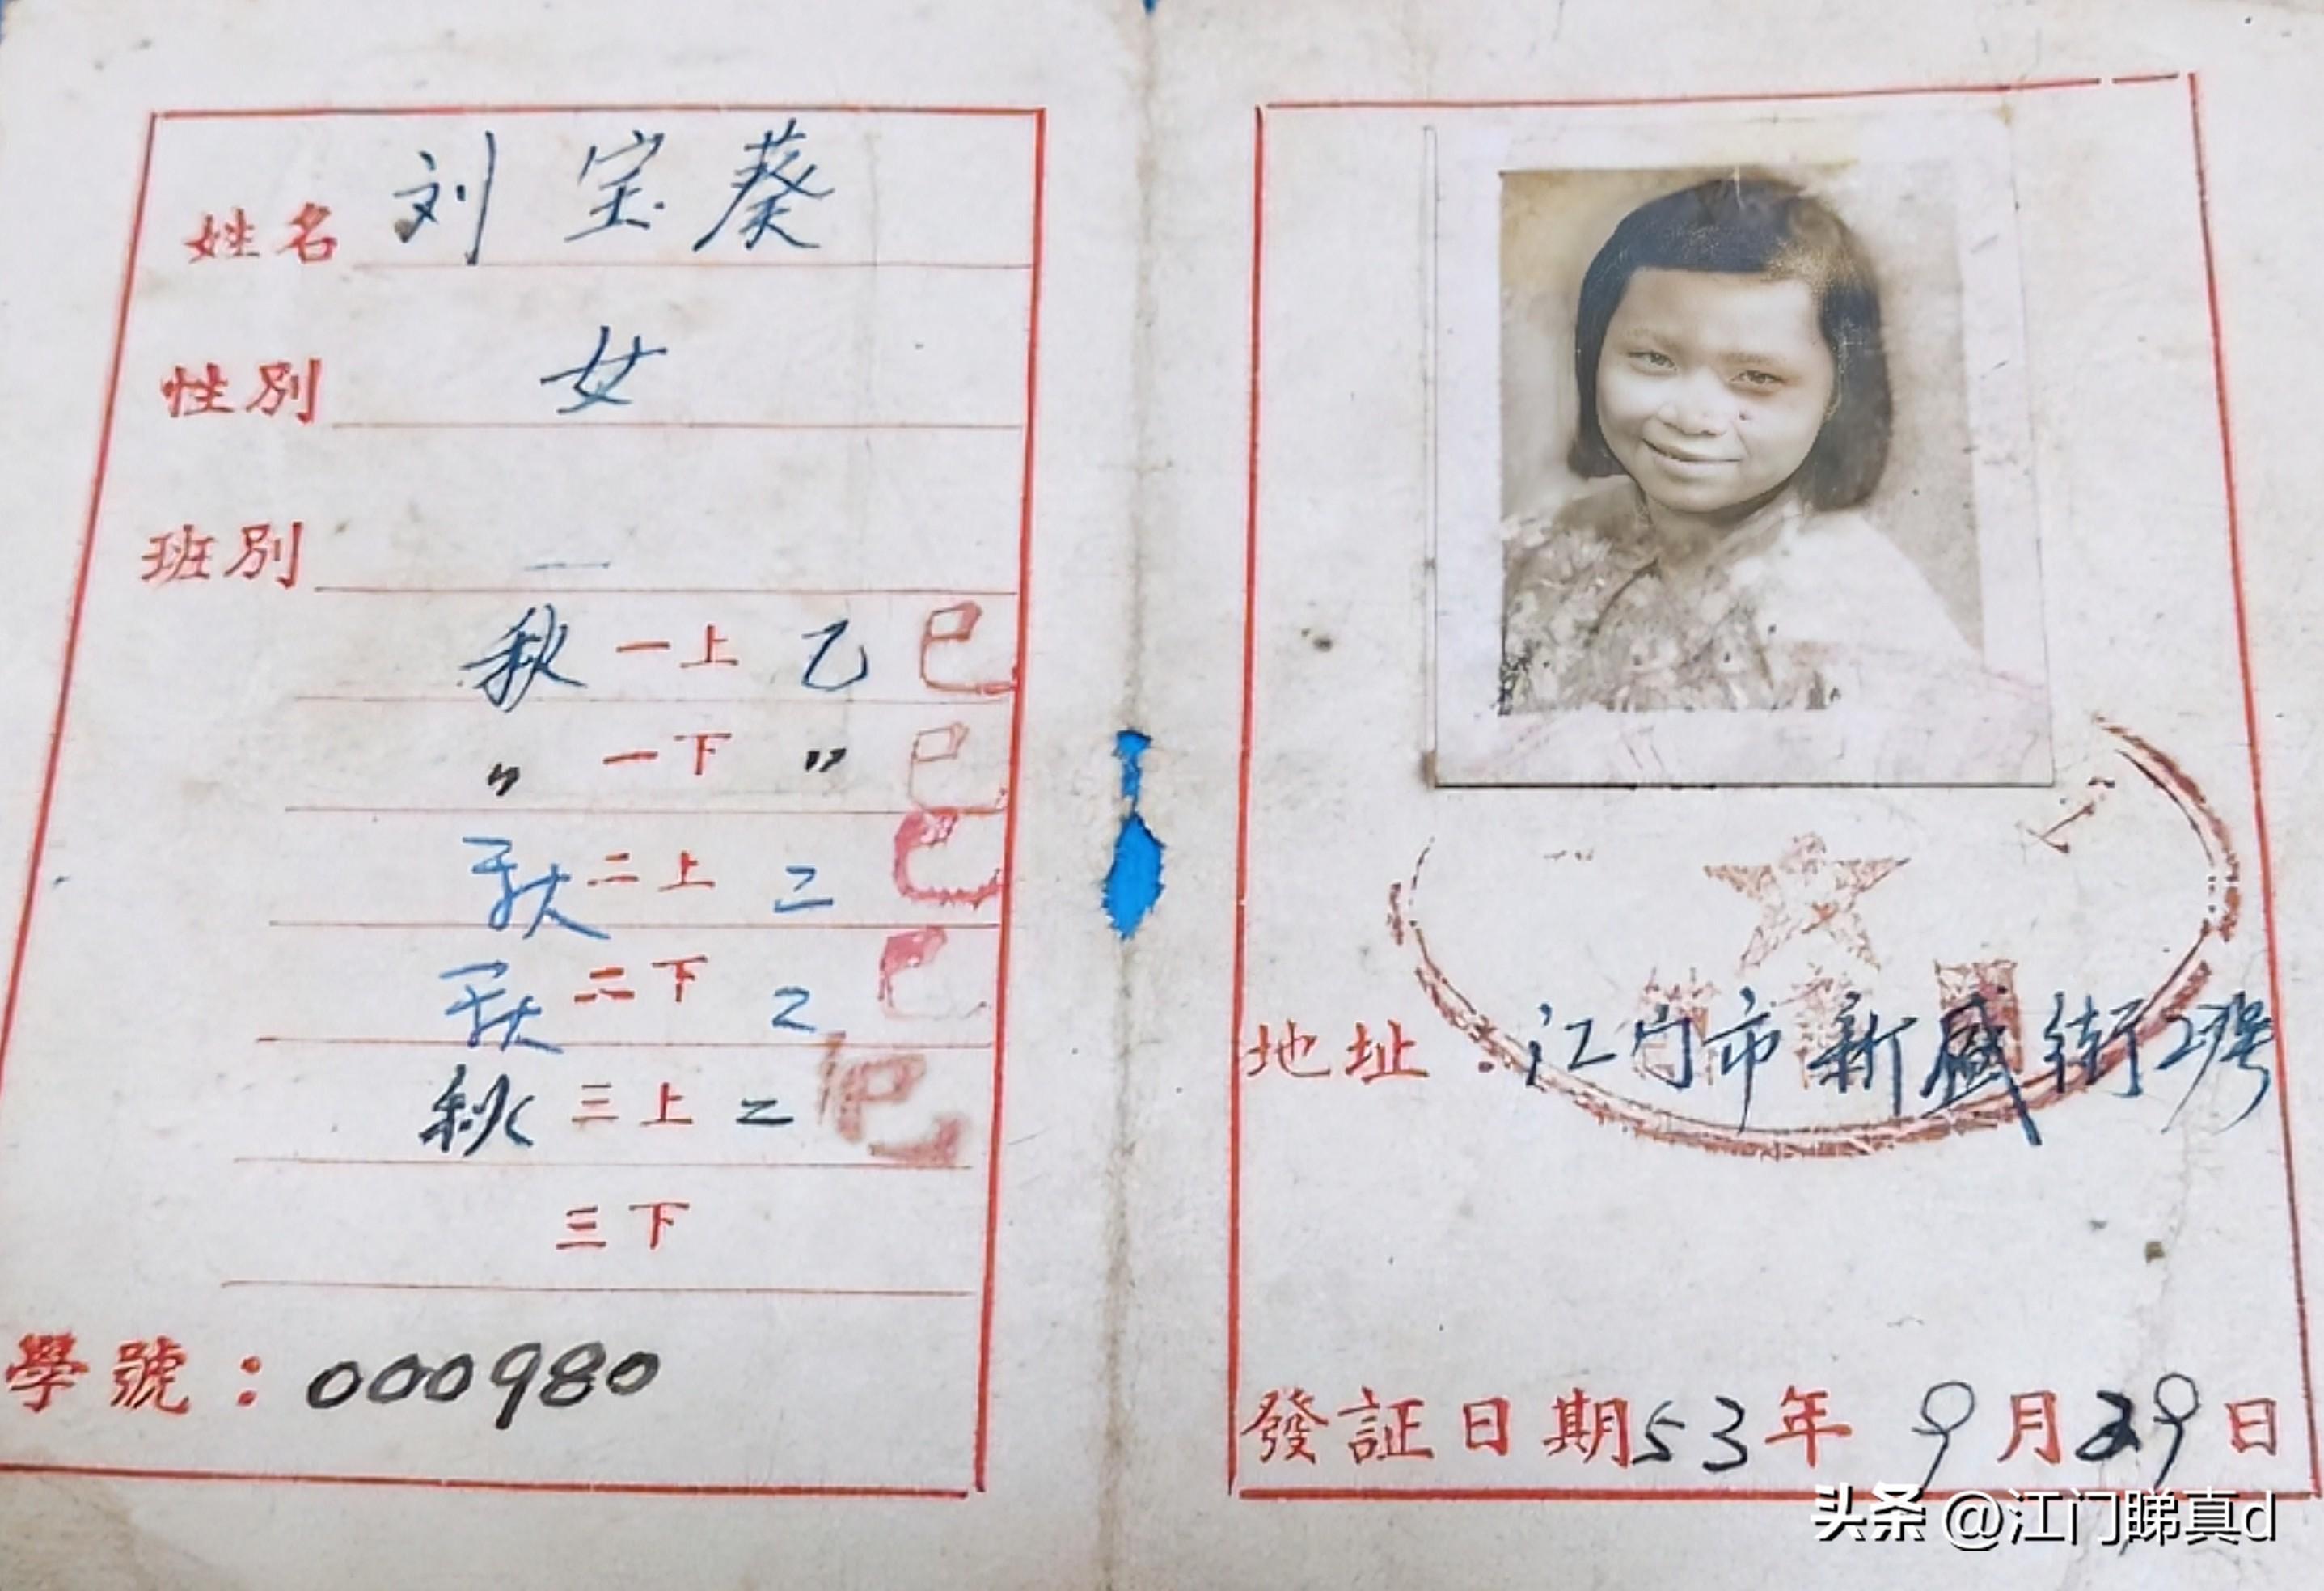 姓名 刘宝葵
性別 女
班別 一
秋 一上 乙 已
〃 一下 〃 已
秋 二上 乙 已
秋 二下 乙 已
秋 三上 乙
三下
學號：000980
地址：江门市新盛街27号
發証日期53年9月29日
头条 @江门睇真d